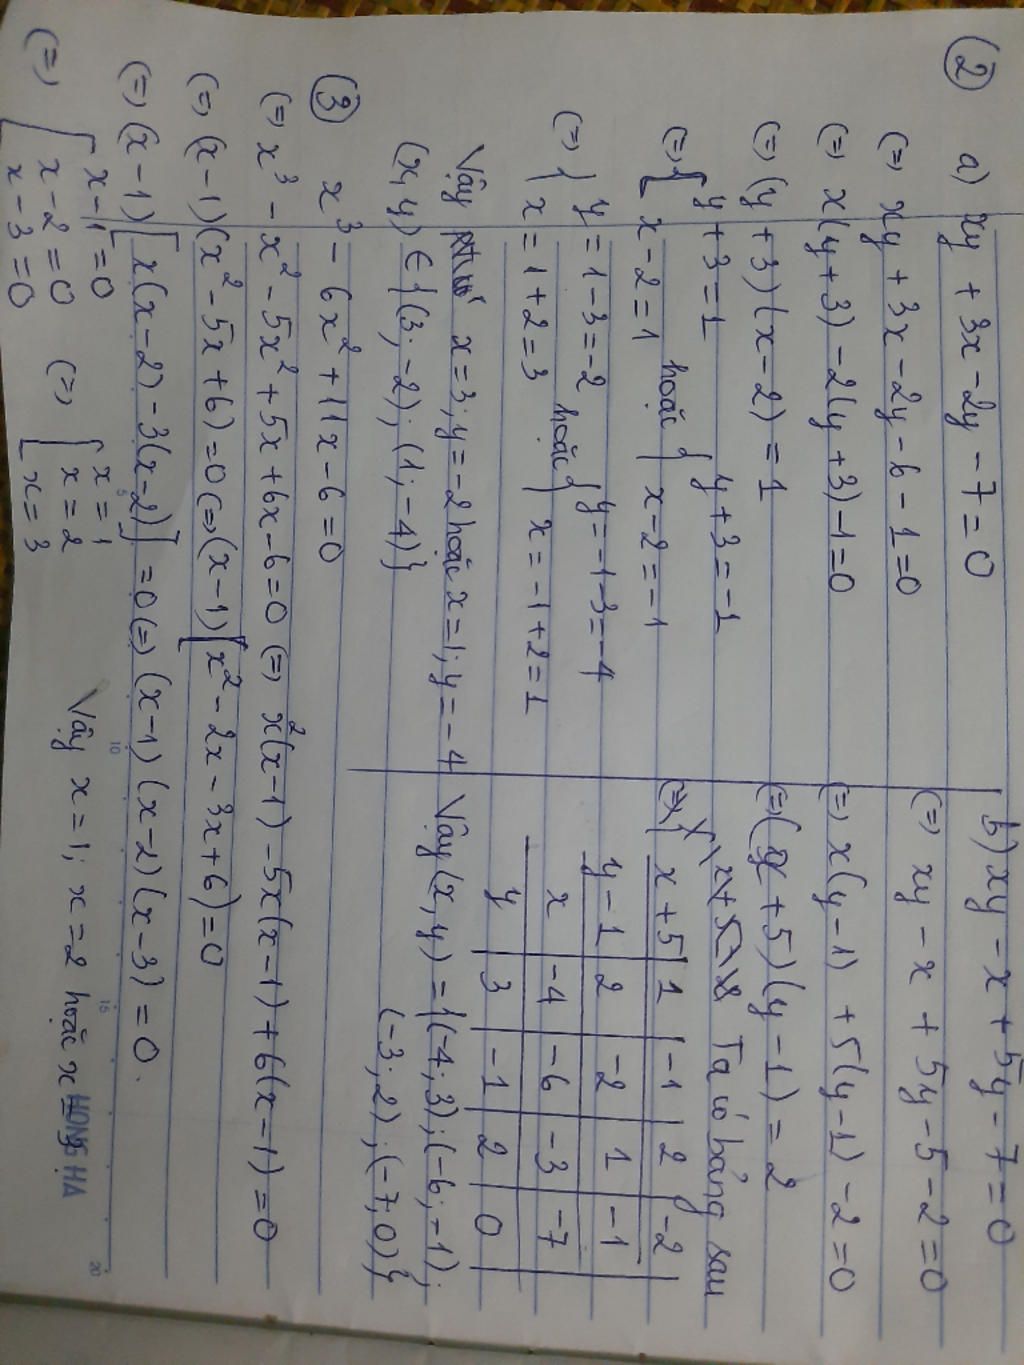 ② a) xy + 3x - 2y - 7 = 0
(=) xy + 3x - 2y - 6 - 1 = 0
(=) x(y+3) - 2(y+3) - 1 = 0
(=) (y+3)(x-2) = 1
(=) { y+3=1 hoặc { y+3=-1
x-2=1 x-2=-1
(=) { y=1-3=-2 hoặc { y=-1-3=-4
x=1+2=3 x=-1+2=1
Vậy x=3; y=-2 hoặc x=1; y=-4
(x,y) ∈ {(3;-2); (1;-4)}
b) xy - x + 5y - 7 = 0
(=) xy - x + 5y - 5 - 2 = 0
(=) x(y-1) + 5(y-1) - 2 = 0
(=) (x+5)(y-1) = 2
Ta có bảng sau
x+5 | 1 | -1 | 2 | -2
y-1 | 2 | -2 | 1 | -1
x | -4 | -6 | -3 | -7
y | 3 | -1 | 2 | 0
Vậy (x,y) = {(-4;3); (-6;-1);
(-3;2); (-7;0)}
③ x³ - 6x² + 11x - 6 = 0
(=) x³ - x² - 5x² + 5x + 6x - 6 = 0 (=) x²(x-1) - 5x(x-1) + 6(x-1) = 0
(=) (x-1)(x² - 5x + 6) = 0 (=) (x-1)[x² - 2x - 3x + 6) = 0
(=) (x-1)[x(x-2) - 3(x-2)] = 0 (=) (x-1)(x-2)(x-3) = 0.
(=) [ x-1=0 (=) [ x=1
x-2=0 x=2
x-3=0 x=3
Vậy x=1; x=2 hoặc x=
HONG HA
5 10 15 20